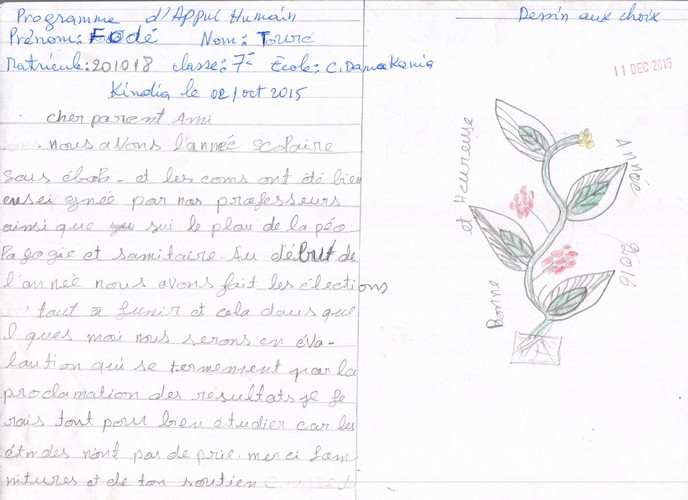 Programme d'Appui Humain
Prénom: Fodé Nom: Touré
Matricule: 201018 classe: 7è École: C. Damakania
Kindia le 02/oct 2015
cher parent Ami
nous avons l'année scolaire
sous ébola - et les cours ont été bien
ensei gnée par nos professeurs
ainsi que sui le plan de la péo
Pagogie et sanitaire. Au début de
l'année nous avons fait les élections
tout a funir et cela dans que
l ques moi nous serons en éva-
luation qui se termement par la
proclamation des résultats je fe
rais tout pour bien étudier car les
études n'ont pas de prie. merci
nitures et de ton soutien
Dessin aux choix
11 DEC 2015
Bonne et Heureuse
Année 2016